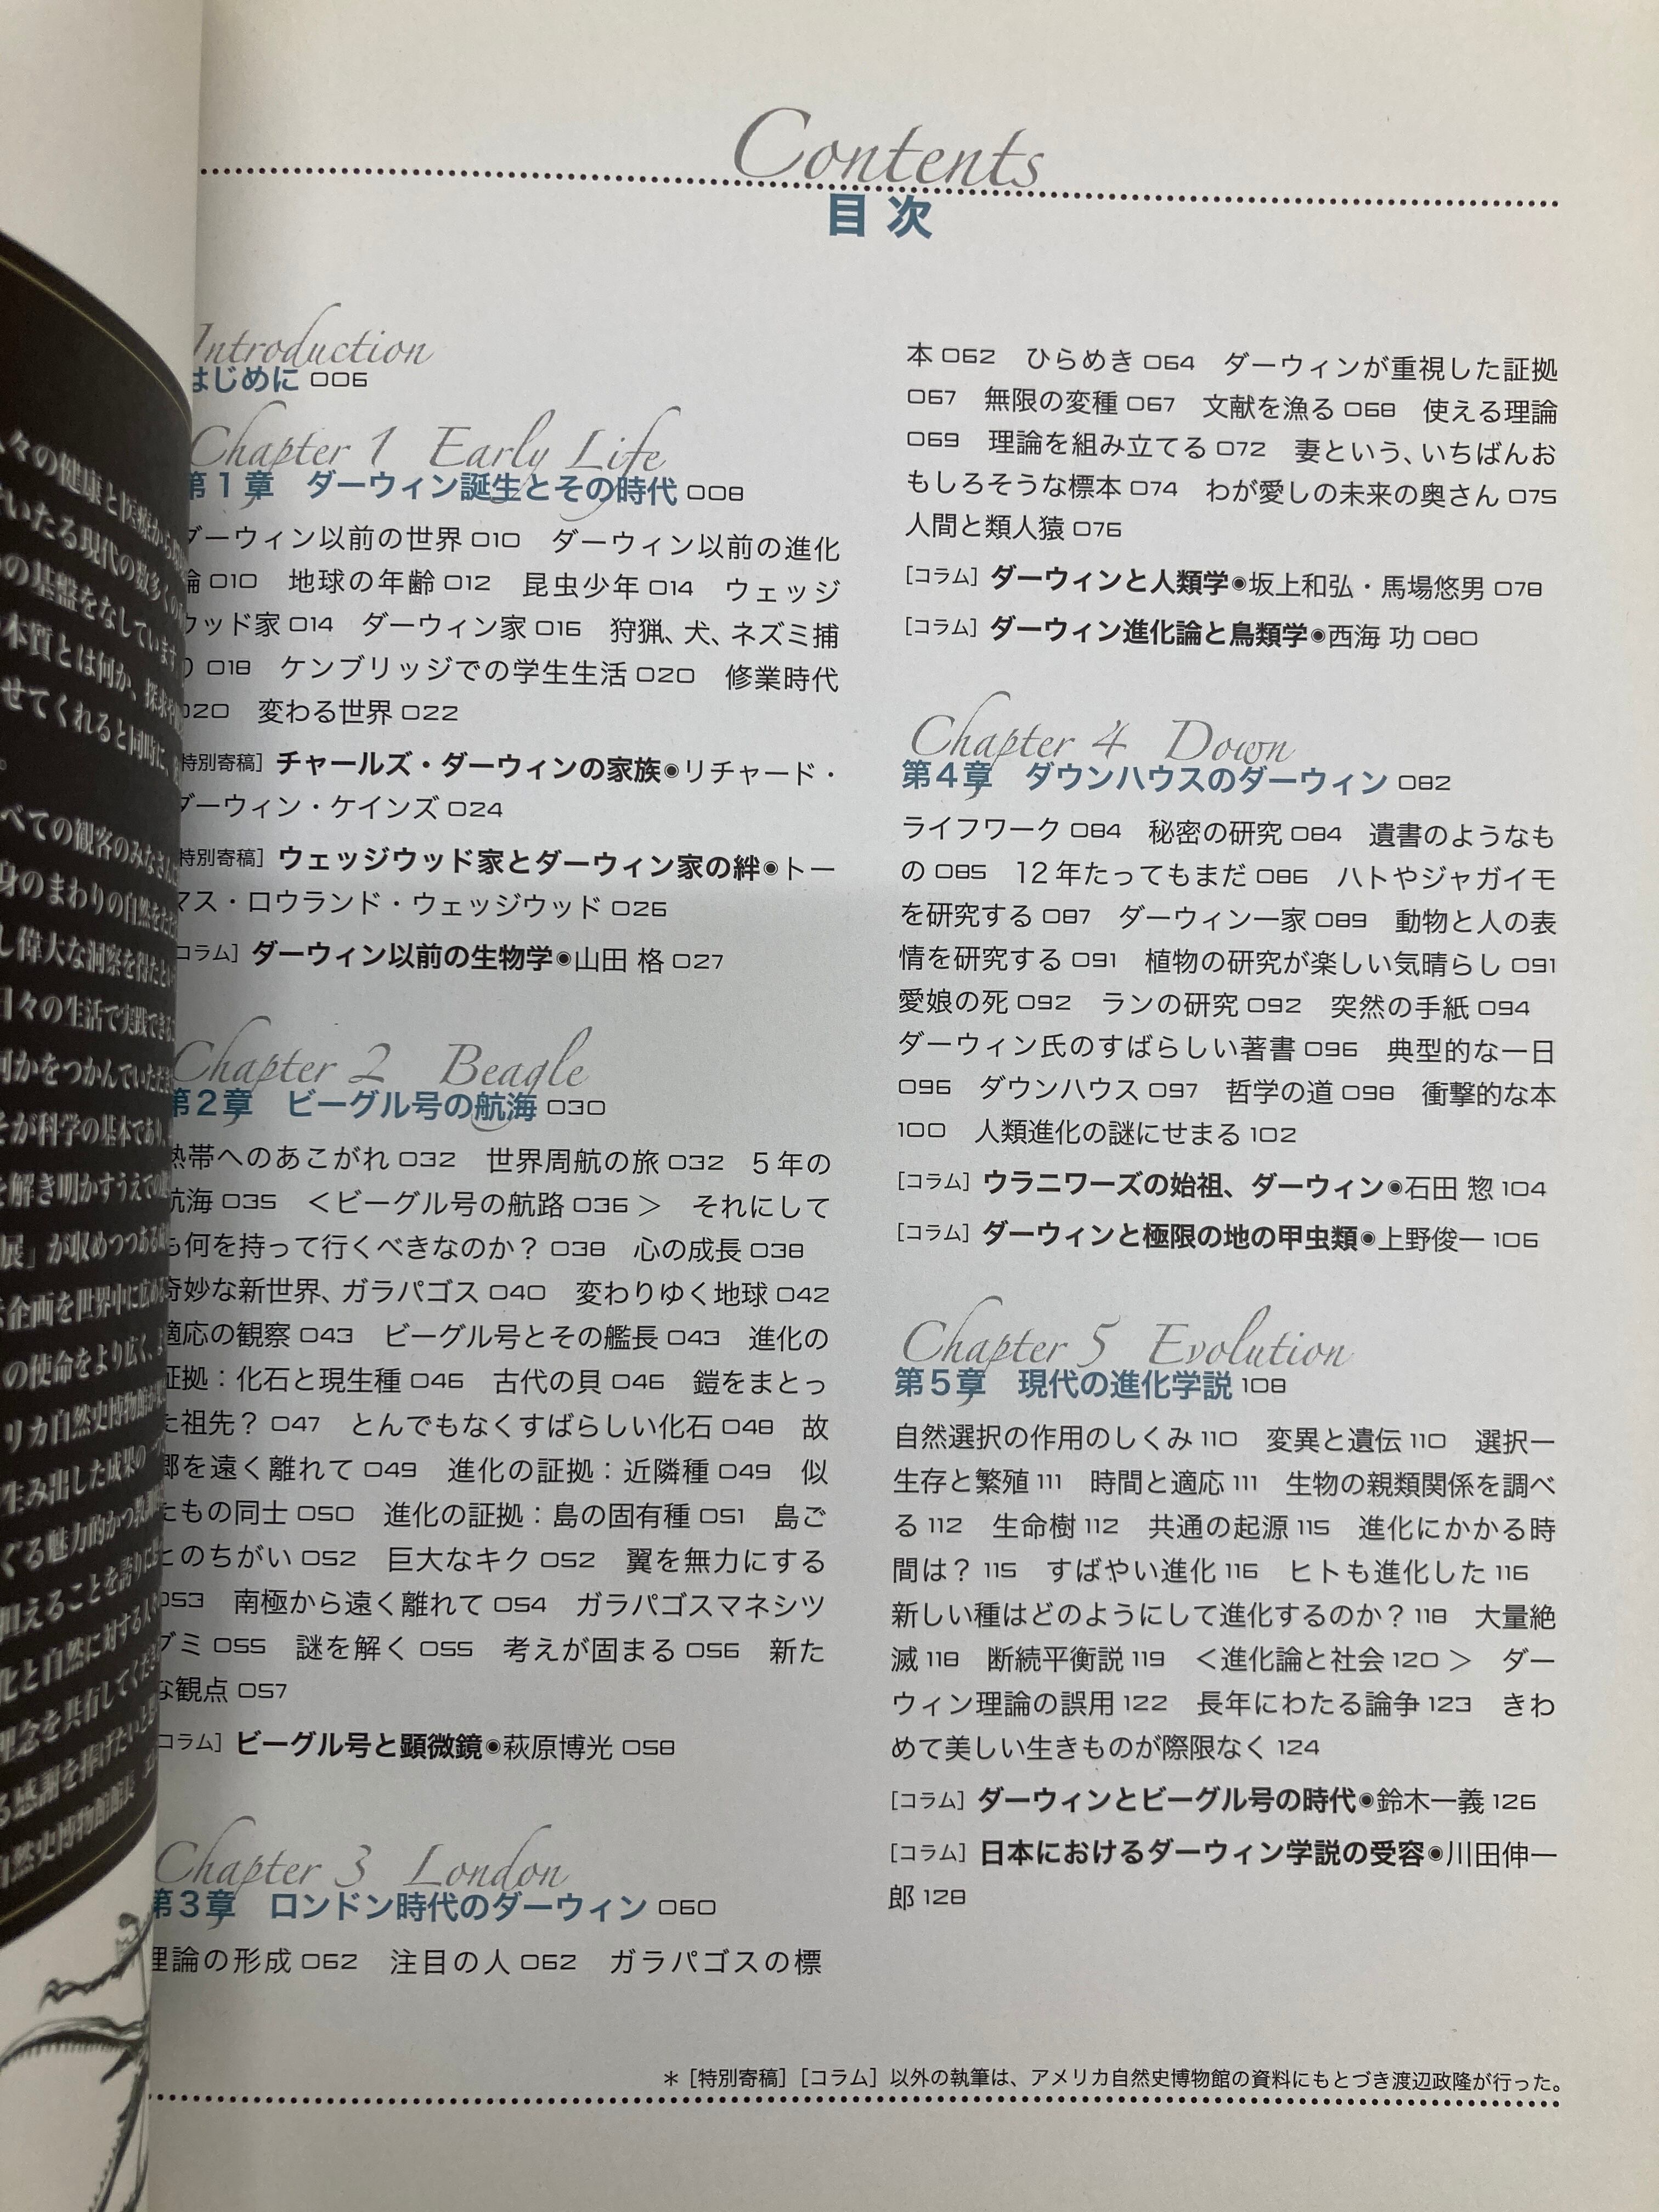 Contents
目次
Introduction
はじめに 006
Chapter 1 Early Life
第1章 ダーウィン誕生とその時代 008
ダーウィン以前の世界 010 ダーウィン以前の進化
論 010 地球の年齢 012 昆虫少年 014 ウェッジ
ウッド家 014 ダーウィン家 016 狩猟、犬、ネズミ捕
り 018 ケンブリッジでの学生生活 020 修業時代
020 変わる世界 022
[特別寄稿] チャールズ・ダーウィンの家族◉リチャード・
ダーウィン・ケインズ 024
[特別寄稿] ウェッジウッド家とダーウィン家の絆◉トー
マス・ロウランド・ウェッジウッド 026
[コラム] ダーウィン以前の生物学◉山田 格 027
Chapter 2 Beagle
第2章 ビーグル号の航海 030
熱帯へのあこがれ 032 世界周航の旅 032 5年の
航海 035 ＜ビーグル号の航路 036＞ それにして
も何を持って行くべきなのか？ 038 心の成長 038
奇妙な新世界、ガラパゴス 040 変わりゆく地球 042
適応の観察 043 ビーグル号とその艦長 043 進化の
証拠：化石と現生種 046 古代の貝 046 鎧をまとっ
た祖先？ 047 とんでもなくすばらしい化石 048 故
郷を遠く離れて 049 進化の証拠：近隣種 049 似
たもの同士 050 進化の証拠：島の固有種 051 島ご
とのちがい 052 巨大なキク 052 翼を無力にする
053 南極から遠く離れて 054 ガラパゴスマネシツ
グミ 055 謎を解く 055 考えが固まる 056 新た
な観点 057
[コラム] ビーグル号と顕微鏡◉萩原博光 058
Chapter 3 London
第3章 ロンドン時代のダーウィン 060
理論の形成 062 注目の人 062 ガラパゴスの標
本 062 ひらめき 064 ダーウィンが重視した証拠
067 無限の変種 067 文献を漁る 068 使える理論
069 理論を組み立てる 072 妻という、いちばんお
もしろそうな標本 074 わが愛しの未来の奥さん 075
人間と類人猿 076
[コラム] ダーウィンと人類学◉坂上和弘・馬場悠男 078
[コラム] ダーウィン進化論と鳥類学◉西海 功 080
Chapter 4 Down
第4章 ダウンハウスのダーウィン 082
ライフワーク 084 秘密の研究 084 遺書のようなも
の 085 12年たってもまだ 086 ハトやジャガイモ
を研究する 087 ダーウィン一家 089 動物と人の表
情を研究する 091 植物の研究が楽しい気晴らし 091
愛娘の死 092 ランの研究 092 突然の手紙 094
ダーウィン氏のすばらしい著書 096 典型的な一日
096 ダウンハウス 097 哲学の道 098 衝撃的な本
100 人類進化の謎にせまる 102
[コラム] ウラニワーズの始祖、ダーウィン◉石田 惣 104
[コラム] ダーウィンと極限の地の甲虫類◉上野俊一 106
Chapter 5 Evolution
第5章 現代の進化学説 108
自然選択の作用のしくみ 110 変異と遺伝 110 選択―
生存と繁殖 111 時間と適応 111 生物の親類関係を調べ
る 112 生命樹 112 共通の起源 115 進化にかかる時
間は？ 115 すばやい進化 116 ヒトも進化した 116
新しい種はどのようにして進化するのか？ 118 大量絶
滅 118 断続平衡説 119 ＜進化論と社会 120＞ ダー
ウィン理論の誤用 122 長年にわたる論争 123 きわ
めて美しい生きものが際限なく 124
[コラム] ダーウィンとビーグル号の時代◉鈴木一義 126
[コラム] 日本におけるダーウィン学説の受容◉川田伸一
郎 128
＊[特別寄稿][コラム]以外の執筆は、アメリカ自然史博物館の資料にもとづき渡辺政隆が行った。
々の健康と医療から
いたる現代の数多くの
の基盤をなしています
本質とは何か、探求や
せてくれると同時に、
べての観客のみなさんに
身のまわりの自然を
し偉大な洞察を得たとい
日々の生活で実践できる
何かをつかんでいただき
そが科学の基本であり、
を解き明かすうえでの
展」が収めつつある
企画を世界中に広める
の使命をより広く、
リカ自然史博物館が
生み出した成果の一つ
ぐる魅力的かつ
担えることを誇りに
化と自然に対する人々
理念を共有してくださ
る感謝を捧げたいと
自然史博物館館長